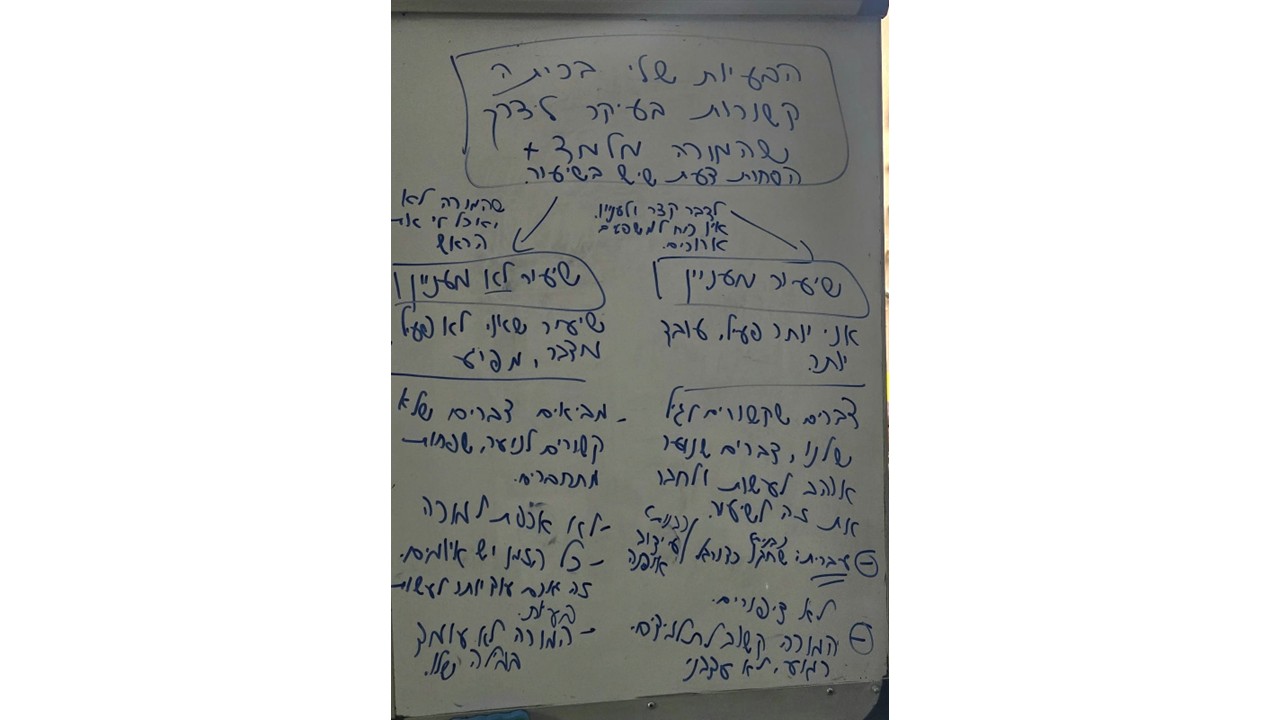 הבעיות שלי בכיתה
קשורות בעיקר לדרך
שהמורה מלמד +
הסחות דעת שיש בשיעור.
שהמורה לא
יאכל לי את
הראש
לדבר קצר ולעניין.
אין כח למשפטים
ארוכים.
שיעור מעניין
אני יותר פעיל, עובד
יותר.
דברים שקשורים לגיל
שלנו, דברים שנוער
אוהב לעשות ולחבר
את זה לשיעור.
עברית: שחקן כדורגל / עיצוב
אופנה
לא ציפורים.
המורה קשוב לתלמידים.
רגוע, לא עצבני
שיעור לא מעניין
שיעור שאני לא פעיל
מדבר, מפריע
- מביאים דברים שלא
קשורים לנוער, שפחות
מתחברים.
- לא אכפת למורה
- כל הזמן יש איומים.
זה גורם עוד יותר לעשות
בעיות.
- המורה לא עומד
במילה שלו.